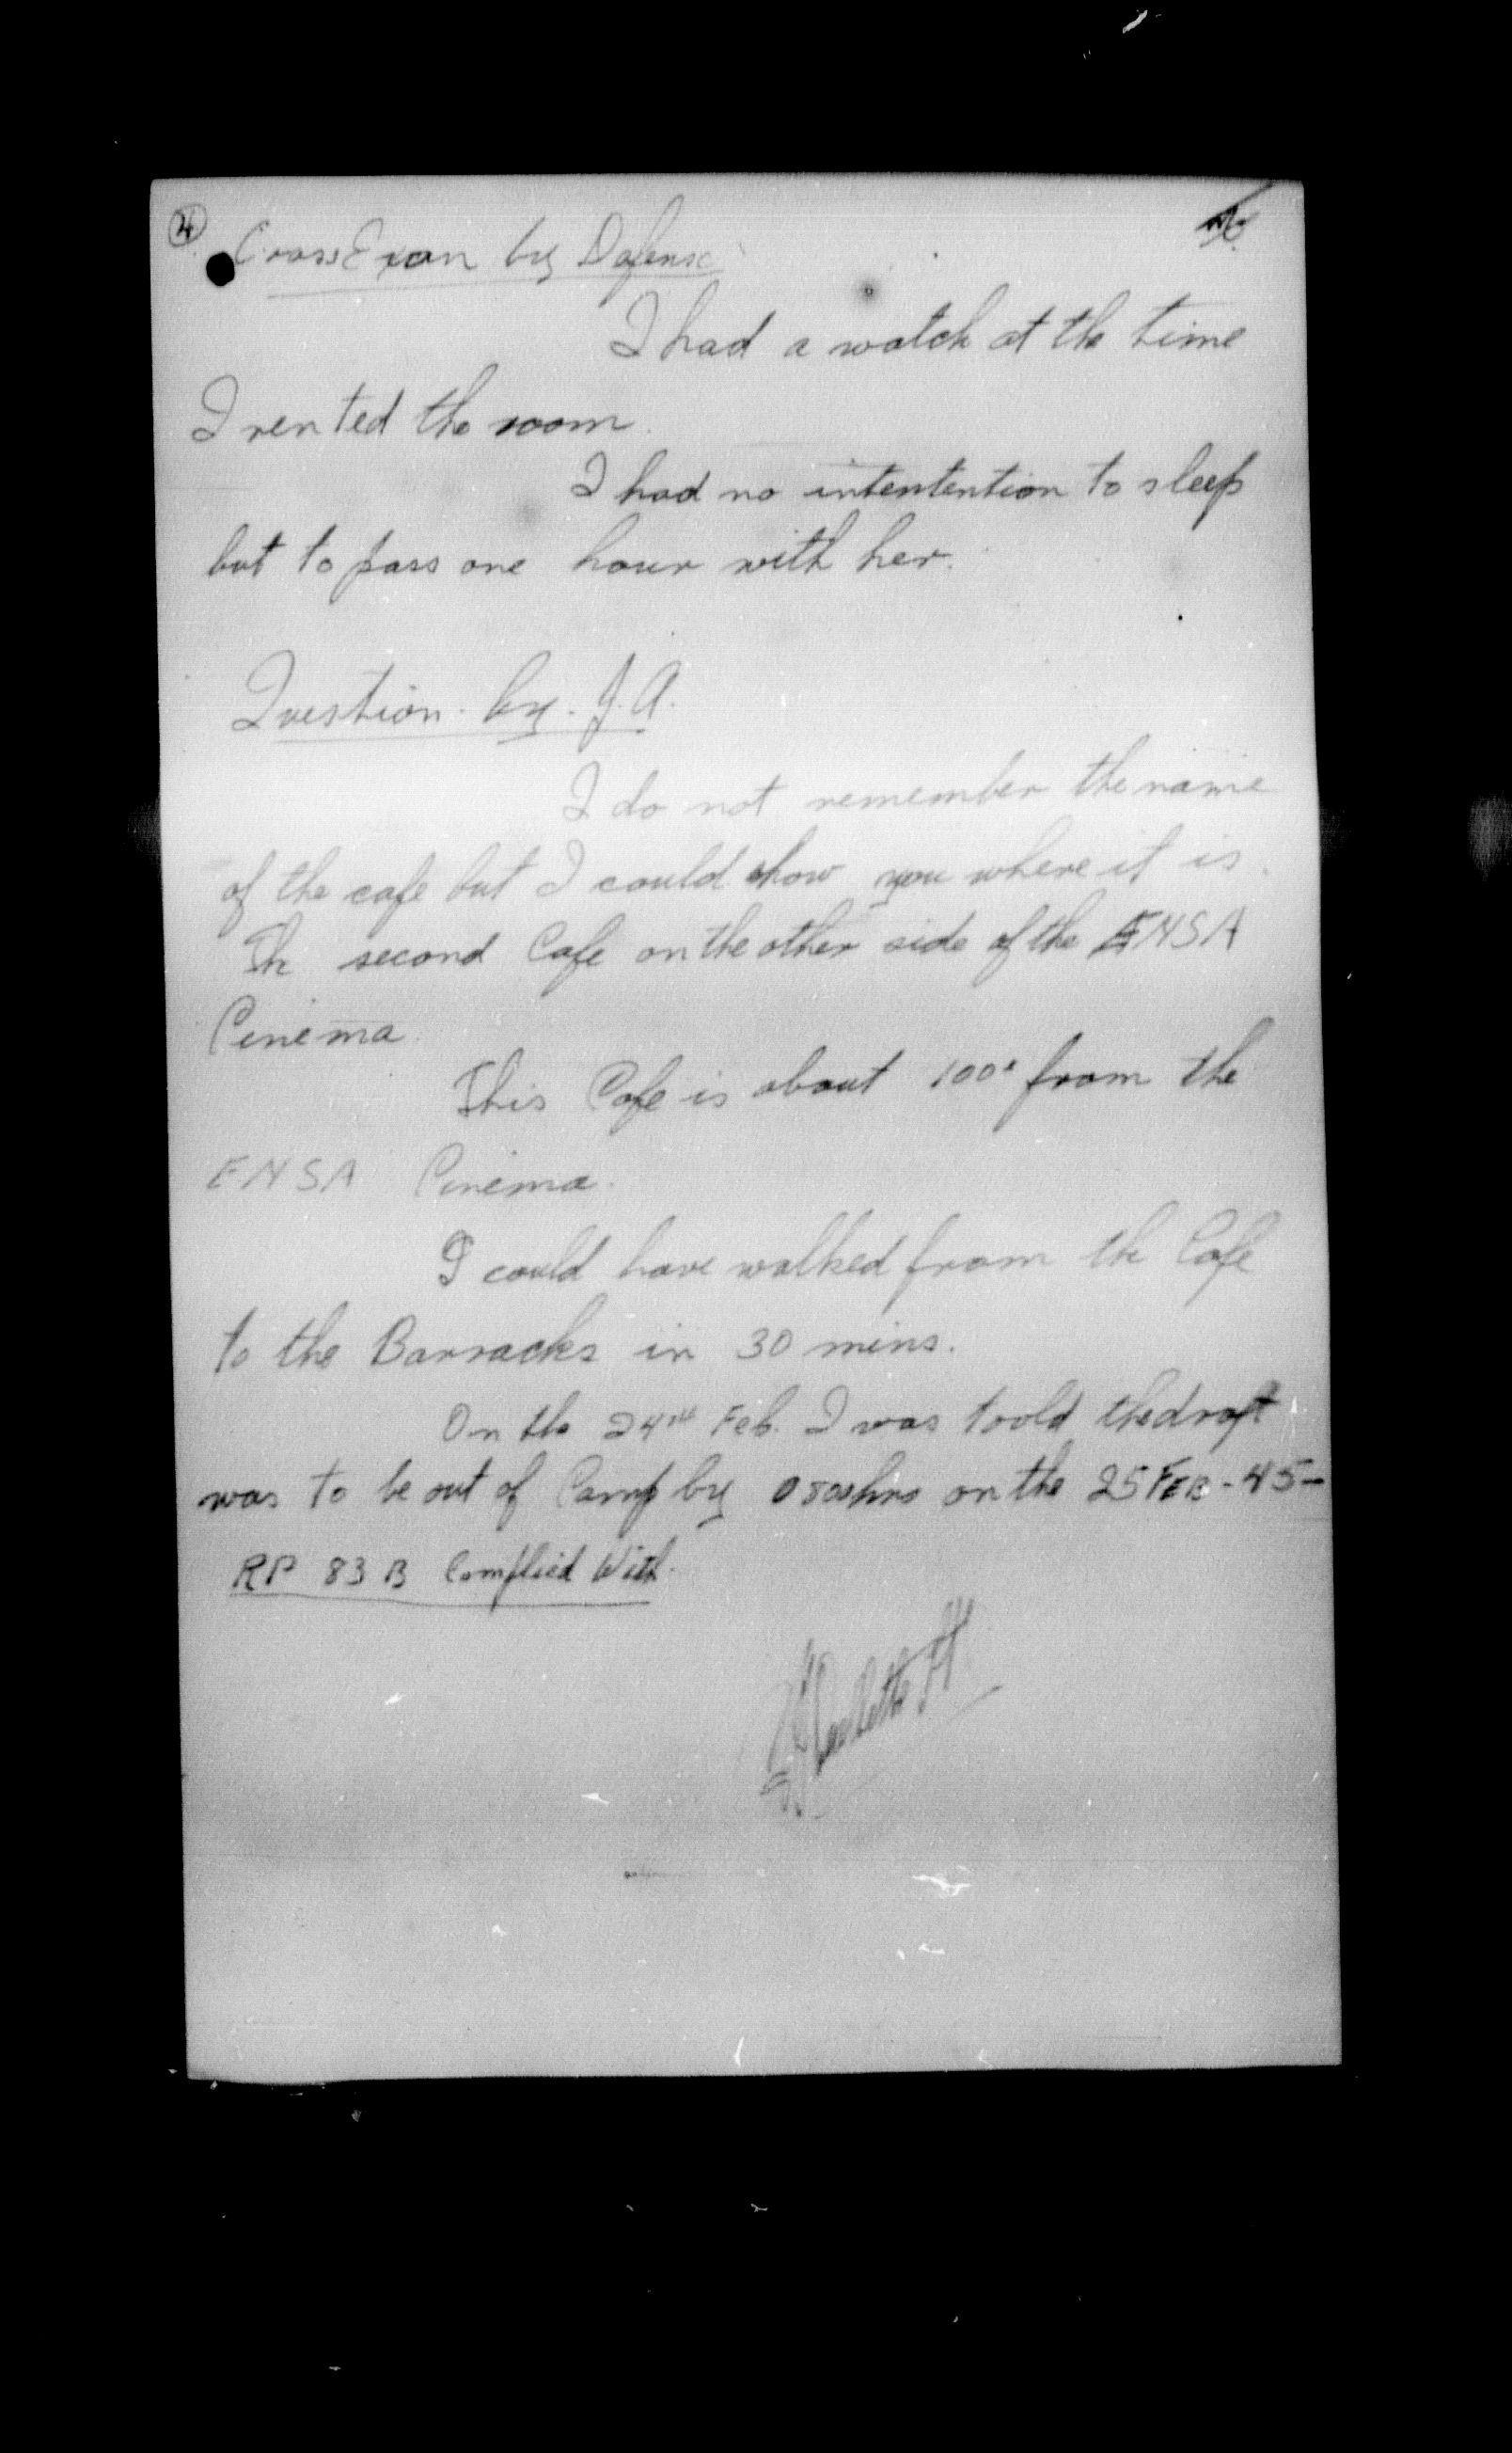 4
Cross Exam by Defense
I had a watch at the time
I rented the room.
I had no intentention to sleep
but to pass one hour with her.
Question by J.A.
I do not remember the name
of the cafe but I could show you where it is.
The second Cafe on the other side of the ENSA
Cinema
This Cafe is about 100x from the
ENSA Cinema.
I could have walked from the Cafe
to the Barracks in 30 mins.
On the 24th Feb. I was toold the draft
was to be out of Camp by 0800 hrs on the 25 FEB - 45 -
RP 83 B Complied With.